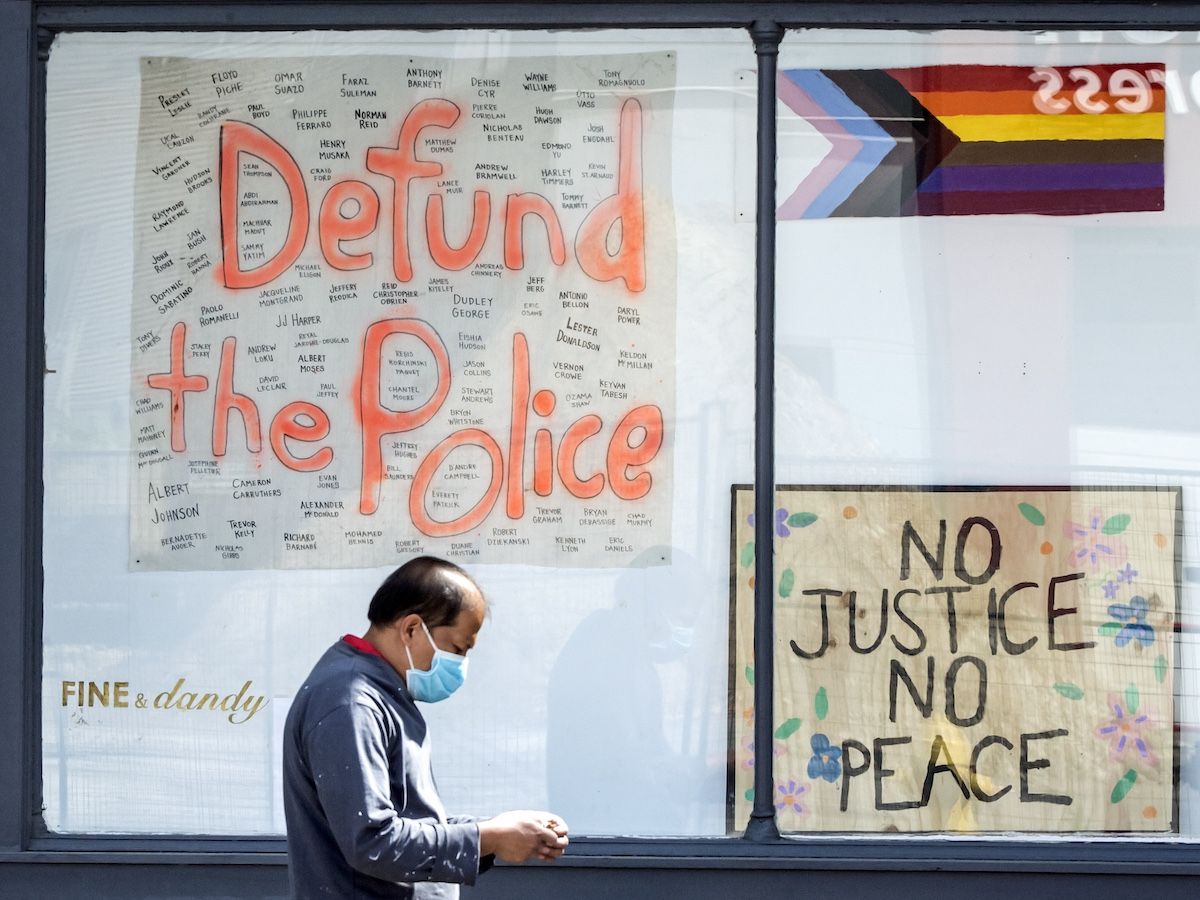 Defund
the Police
FLOYD PICHE
OMAR SUAZO
FARAZ SULEMAN
ANTHONY BARNETT
DENISE CYR
WAYNE WILLIAMS
TONY ROMAGNUOLO
PRESLEY LESLIE
PAUL BOYD
PHILIPPE FERRARO
NORMAN REID
PIERRE CORIOLAN
HUGH DAWSON
OTTO VASS
NICHOLAS BENTEAU
JOSH ENGDAHL
HENRY MUSAKA
MATTHEW DUMAS
EDMOND YU
VINCENT GARDNER
HUDSON BROOKS
SEAN THOMPSON
CRAIG FORD
LANCE MUIR
ANDREW BRAMWELL
HARLEY TIMMERS
KEVIN ST. ARNAUD
ABDI ABDIRAHMAN
TOMMY BARNETT
RAYMOND LAWRENCE
MACHUAR MADUT
IAN BUSH
SAMMY YATIM
JOHN RIOUX
ROBERT HANNA
MICHAEL ELIGON
ANDREAS CHINNERY
DOMINIC SABATINO
JACQUELINE MONTGRAND
JEFFERY REODICA
REID CHRISTOPHER O'BRIEN
JAMES KITELEY
JEFF BERG
DUDLEY GEORGE
ANTONIO BELLON
PAOLO ROMANELLI
JJ HARPER
ERIC OSAWE
DARYL POWER
LESTER DONALDSON
TONY DIVERS
STACEY PERRY
ANDREW LOKU
ALBERT MOSES
REGIS KORCHINSKI PAQUET
EISHIA HUDSON
KELDON McMILLAN
JASON COLLINS
VERNON CROWE
DAVID LECLAIR
PAUL JEFFEY
CHANTEL MOORE
STEWART ANDREWS
OZAMA SHAW
KEYVAN TABESH
CHAD WILLIAMS
BRYON WHITSTONE
MATT MAHONEY
QUINN McDOUGALL
JEFFREY HUGHES
JOSEPHINE PELLETIER
BILL SAUNDERS
D'ANDRE CAMPBELL
ALBERT JOHNSON
CAMERON CARRUTHERS
EVAN JONES
EVERETT PATRICK
ALEXANDER McDONALD
TREVOR GRAHAM
BRYAN DEBASSIGE
CHAD MURPHY
BERNADETTE AUGER
TREVOR KELLY
NICHOLAS GIBBS
RICHARD BARNABÉ
MOHAMED BENNIS
ROBERT GREGORY
DUANE CHRISTIAN
ROBERT DZIEKANSKI
KENNETH LYON
ERIC DANIELS
FINE & dandy
NO
JUSTICE
NO
PEACE